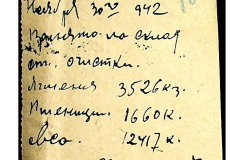 Ноября 30го 942
Принято на склад
от очистки
Ячменя 3526кг.
Пшеницы 1660к.
овса 12417к.